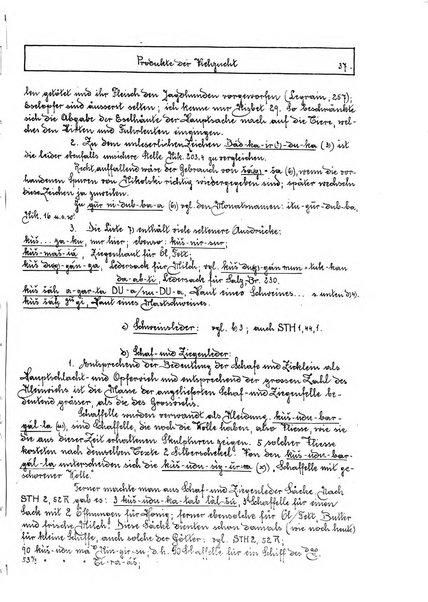 Produkte der Viehzucht 37.
len getötet und ihr Fleisch den Jagdhunden vorgeworfen (Legrain, 257);
Eselopfer sind äusserst selten; ich kenne nur Nisbet 29. So beschränkte
sich die Abgabe der Eselhäute der Hauptsache nach auf die Tiere, wel-
che den Hirten und Fuhrleuten eingingen.
2. Zu dem unleserlichen Zeichen ist
die leider ebenfalls unsichere Stelle Nik. zu vergleichen.
Recht auffallend wäre der Gebrauch von (6), wenn die vor-
handenen Spuren von Nikolski richtig wiedergegeben sind; später wechseln
diese Zeichen ja zuweilen.
Zu gur ni-dub-ba-a (6) vgl. den Monatsnamen: itu-gur-dub-ba,
Nik. 16 u. o.
3. Die Liste 7) enthält viele seltenere Ausdrücke:
kuš nur hier; ebenso: kuš-nir-sur;
kuš-maš-sá, Ziegenhaut für Öl, Fett;
kuš dug-gán-ga, Ledersack für Milch, vgl. kuš
da-ab-ti, Ledersack für Salz, Br. 230.
kuš šáḫ a-gar-ta DU-a, nu-DU-a, Haut eines Schweines... s. unten
kuš šáḫ gi, Haut eines Mastschweines.
c) Schweinsleder: vgl. 63; auch STH 1, 44, 1.
d) Schaf- und Ziegenleder:
1. Entsprechend der Bedeutung der Schafe und Zicklein als
Hauptschlacht- und Opfervieh und entsprechend der grossen Zahl des
Kleinviehs ist die Masse der angelieferten Schaf- und Ziegenfelle be-
deutend grösser, als die des Grossviehs.
Schaffelle wurden verwandt als Kleidung. kuš-udu-bar-
gál-la sind Schaffelle, die noch die Wolle haben, also Vliesse, wie sie
die aus dieser Zeit erhaltenen Skulpturen zeigen. 5 solcher Vliesse
kosteten nach demselben Texte 2 Silberschekel. Von den kuš-udu-bar-
gál-la unterscheiden sich die kuš-udu-sig-ur-ra Schaffelle mit ge-
schorener Wolle.
Ferner machte man aus Schaf- und Ziegenleder Säcke. Nach
STH 2, 52 R gab es: 3 kuš-udu-ka-lal lál-šú, 3 Schaffelle für einen
Sack mit 2 Öffnungen für Honig; ferner ebensolche für Öl, Fett, Butter
und frische Milch. Diese Säcke dienten schon damals (wie noch heute)
für kleine Schiffe, auch solche der Götter: vgl. STH 2, 52 R;
90 kuš-udu má Nin-gir-su, d.h. 90 Schaffelle für ein Schiff des
" " " Ti-ra-áš;